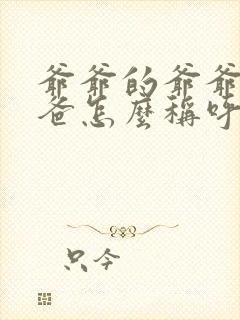 爺爺的爺爺
爸怎麼稱呼
只今